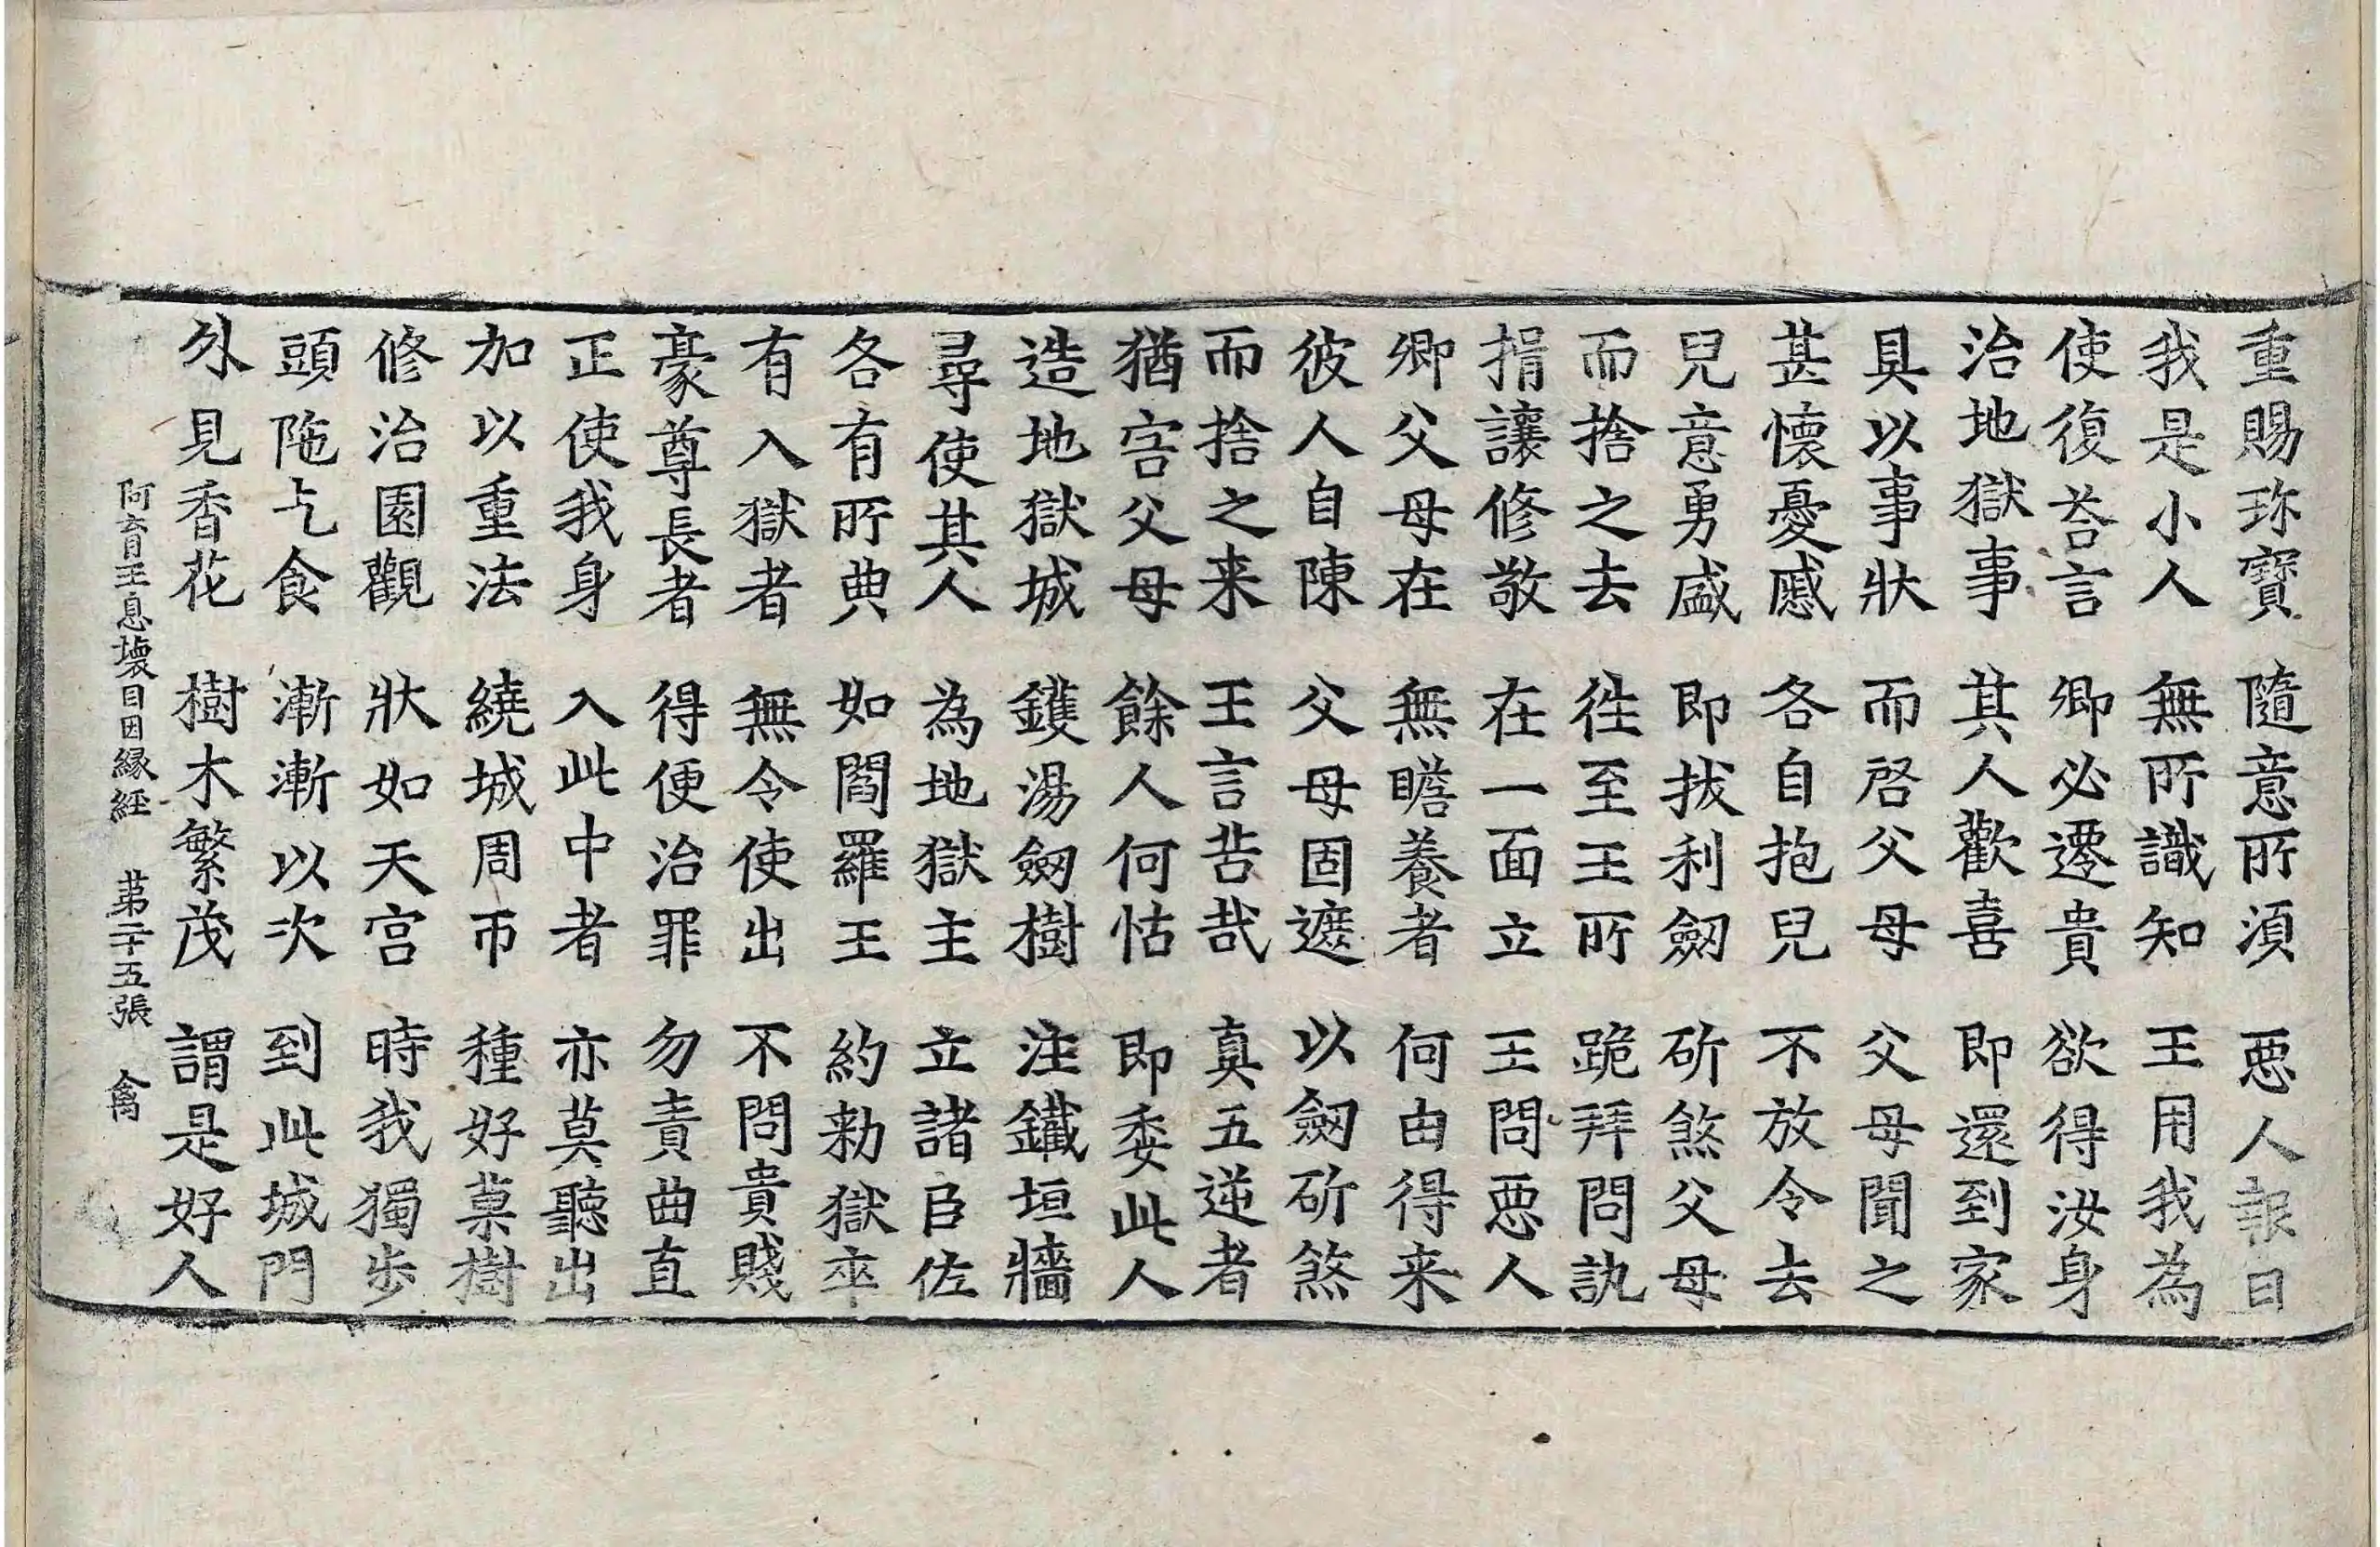 重賜珎寶 隨意所須 惡人報曰
我是小人 無所識知 王用我為
使復荅言 卿必遷貴 欲得汝身
治地獄事 其人歡喜 即還到家
具以事狀 而啓父母 父母聞之
甚懷憂慼 各自抱兒 不放令去
兒意勇盛 即拔利劒 斫煞父母
而捨之去 徃至王所 跪拜問訊
捐讓修敬 在一面立 王問惡人
卿父母在 無瞻養者 何由得来
彼人自陳 父母固遮 以劒斫煞
而捨之来 王言苦哉 真五逆者
猶害父母 餘人何怙 即委此人
造地獄城 鑊湯劒樹 注鐵垣牆
尋使其人 為地獄主 立諸臣佐
各有所典 如閻羅王 約勑獄卒
有入獄者 無令使出 不問貴賤
豪尊長者 得便治罪 勿責曲直
正使我身 入此中者 亦莫聽出
加以重法 繞城周帀 種好菓樹
修治園觀 狀如天宮 時我獨步
頭陁乞食 漸漸以次 到此城門
外見香花 樹木繁茂 謂是好人
阿育王息壞目因緣經 苐二十五張 禽